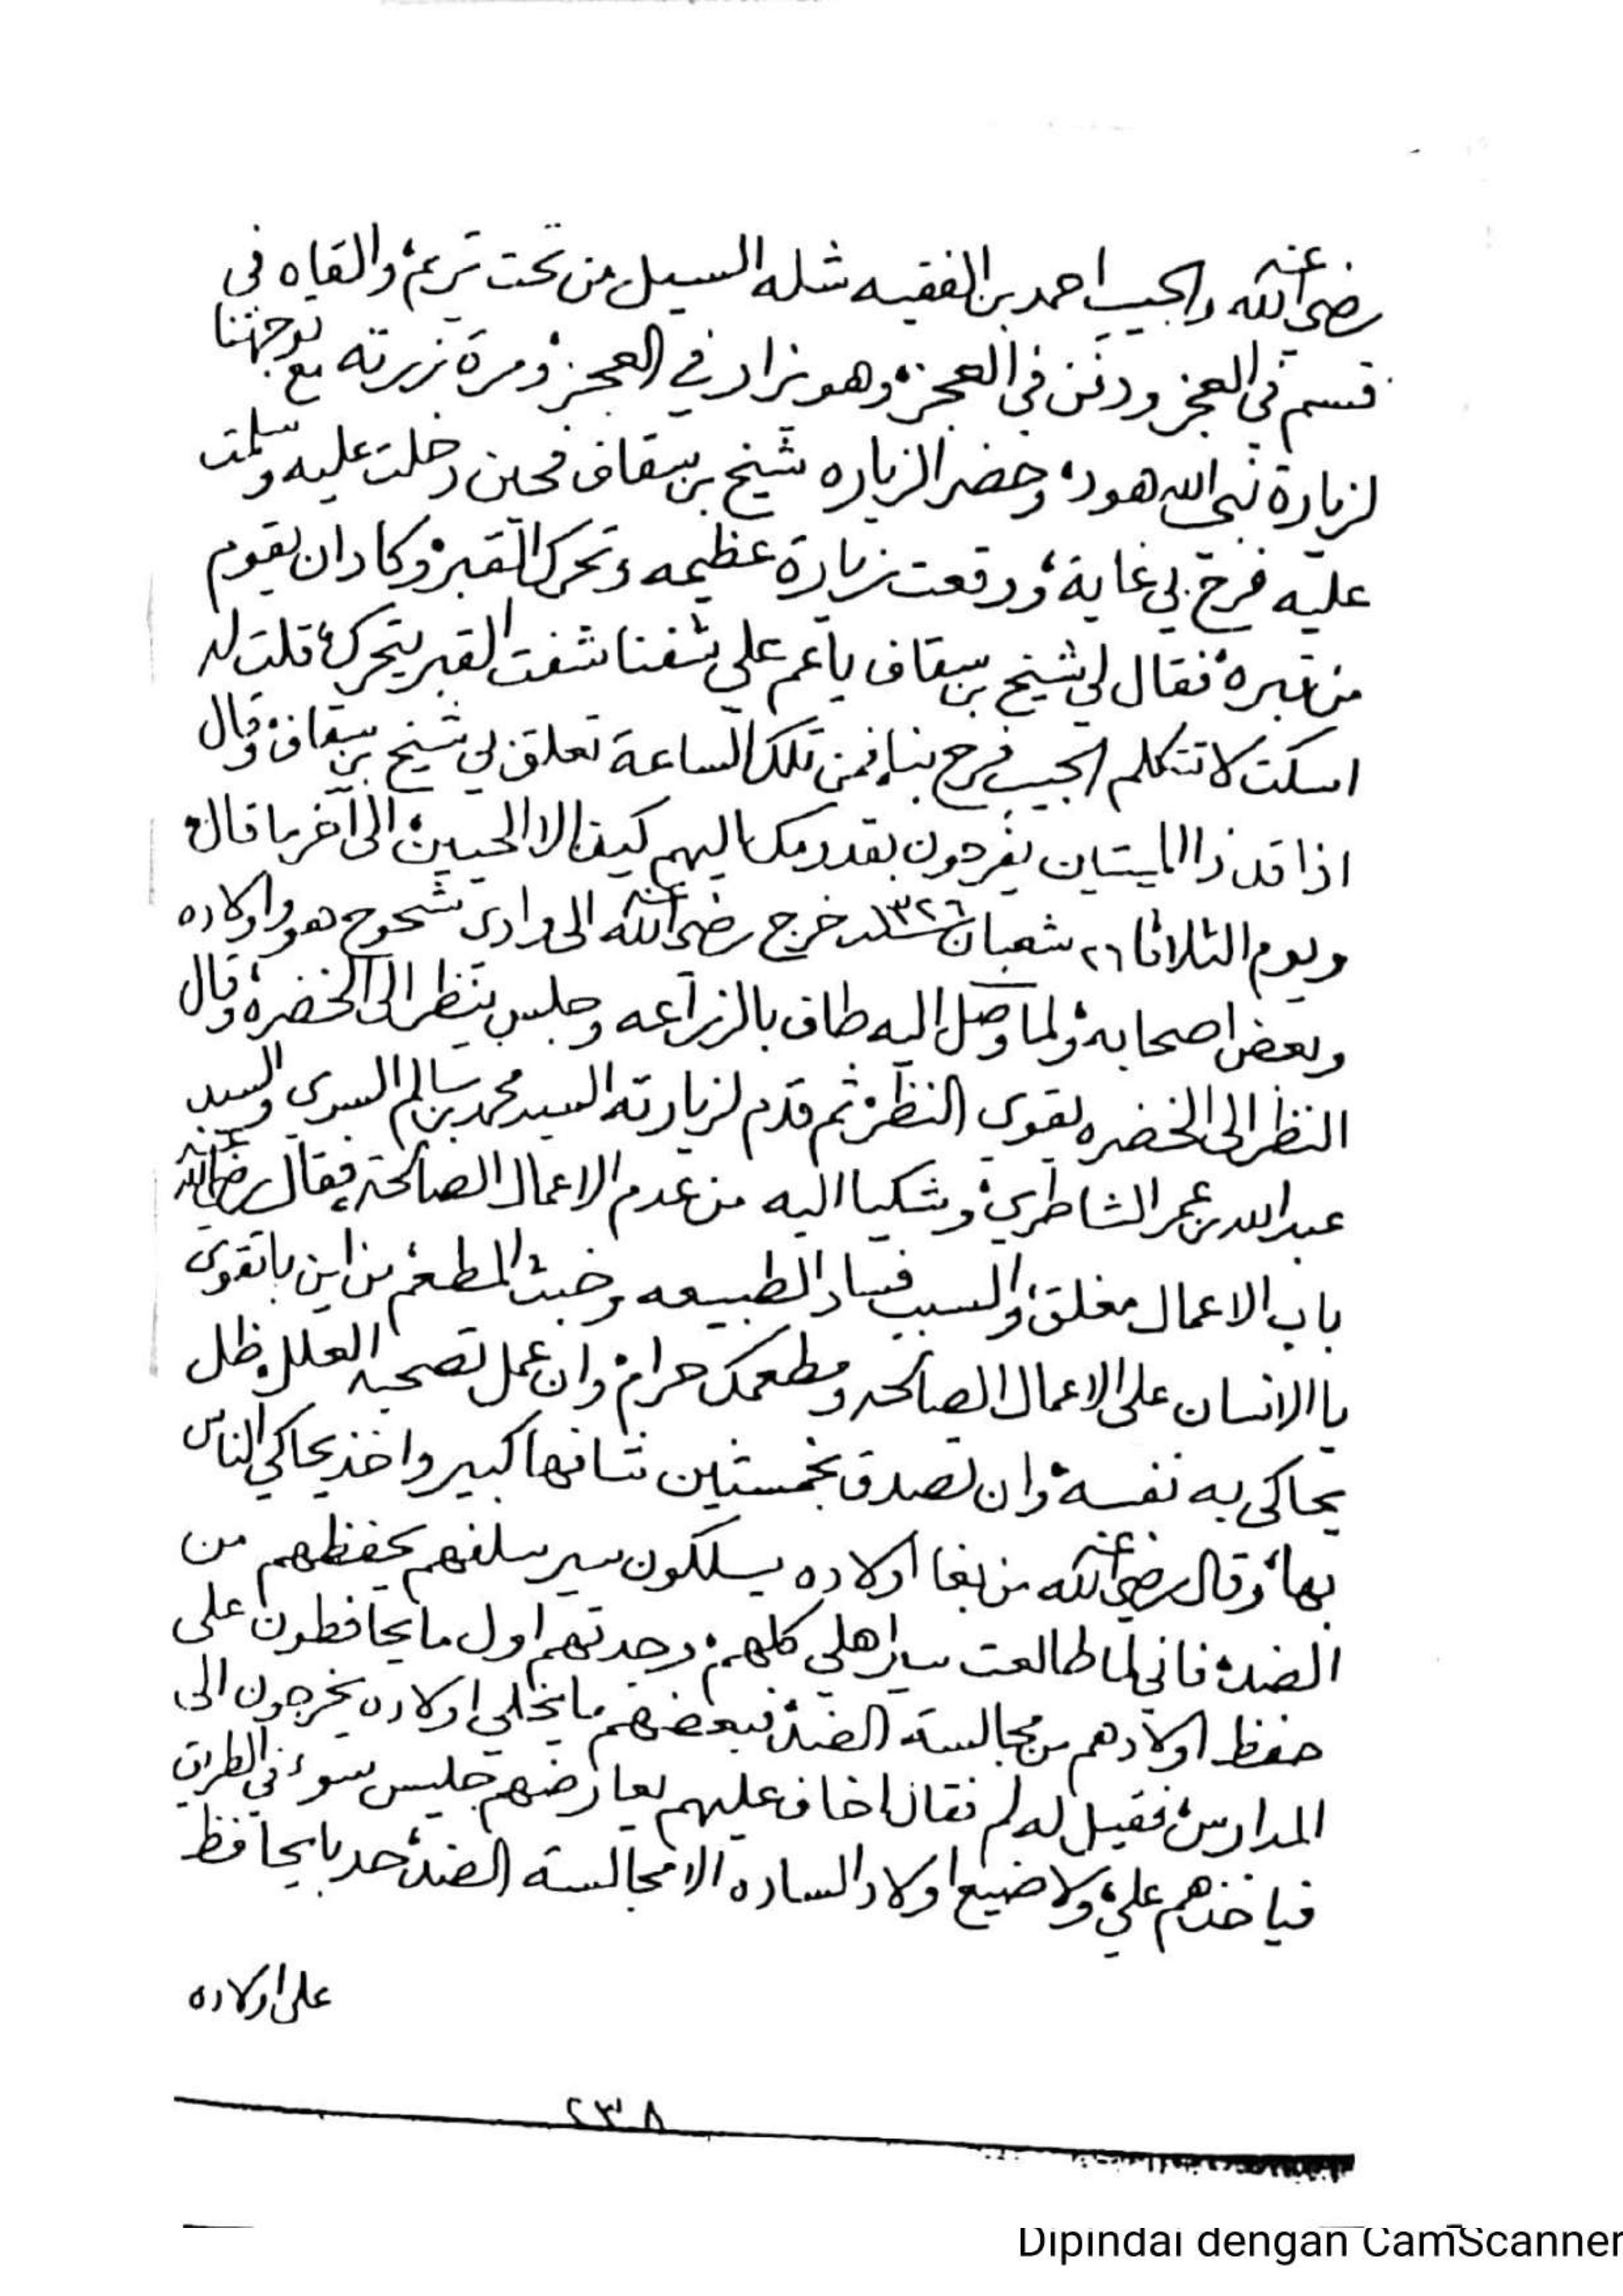 رضي الله عنه والحبيب احمد بن الفقيه شله السيل من تحت تريم، والقاه في
قسم في العجز ودفن في العجز، وهو يزار في العجز، ومرة زرته مع توجهنا
لزيارة نبي الله هود، وحضر الزياره شيخ بن سقاف فحين دخلت عليه وسلمت
عليه فرح بي غاية، ووقعت زيارة عظيمه وتحرك القبر، وكاد ان يقوم
من قبره، فقال لي شيخ بن سقاف ياعم علي شفنا شفت القبر يتحرك، قلت له
اسكت لا تتكلم الحبيب فرح بنا، فمن تلك الساعة تعلق بي شيخ بن سقاف، وقال
اذا قد ذا الميتين يفرحون بقدومك اليهم كيف الا الحيين، الى آخر ما قال،
ويوم الثلاثا ٢٦ شعبان سنة ١٣٢٦ خرج رضي الله عنه الى وادى شحوح هو واولاده
وبعض اصحابه، ولما وصل اليه طاف بالزراعه وجلس ينظر الى الخضرة، وقال
النظر الى الخضره يقوي النظر، ثم قدم لزيارته السيد محمد بن سالم السري والسيد
عبدالله بن عمر الشاطري، وشكيا اليه من عدم الاعمال الصالحة، فقال رضي الله عنه
باب الاعمال مغلق، والسبب فساد الطبيعه وخبث المطعم، من اين باتقوى
يا الانسان على الاعمال الصالحه ومطعمك حرام، وان عمل تصحبه العلل، ظل
يحاكى به نفسه، وان تصدق بخمستين شافها كبير واخذ يحاكي الناس
بها، وقال رضي الله عنه من بغا اولاده يسلكون سير سلفهم يحفظهم من
الضد، فاني لما طالعت سير اهلي كلهم، وجدتهم اول مايحافظون على
حفظ اولادهم من مجالسة الضد، فبعضهم مايخلي اولاده يخرجون الى
المدارس، فقيل له لم فقال اخاف عليهم يعارضهم جليس سوء في الطريق
فياخذهم علي، ولا ضيع اولاد الساده الا مجالسة الضد، حد يايحافظ
على اولاده
٢٣٨
Dipindai dengan CamScanner